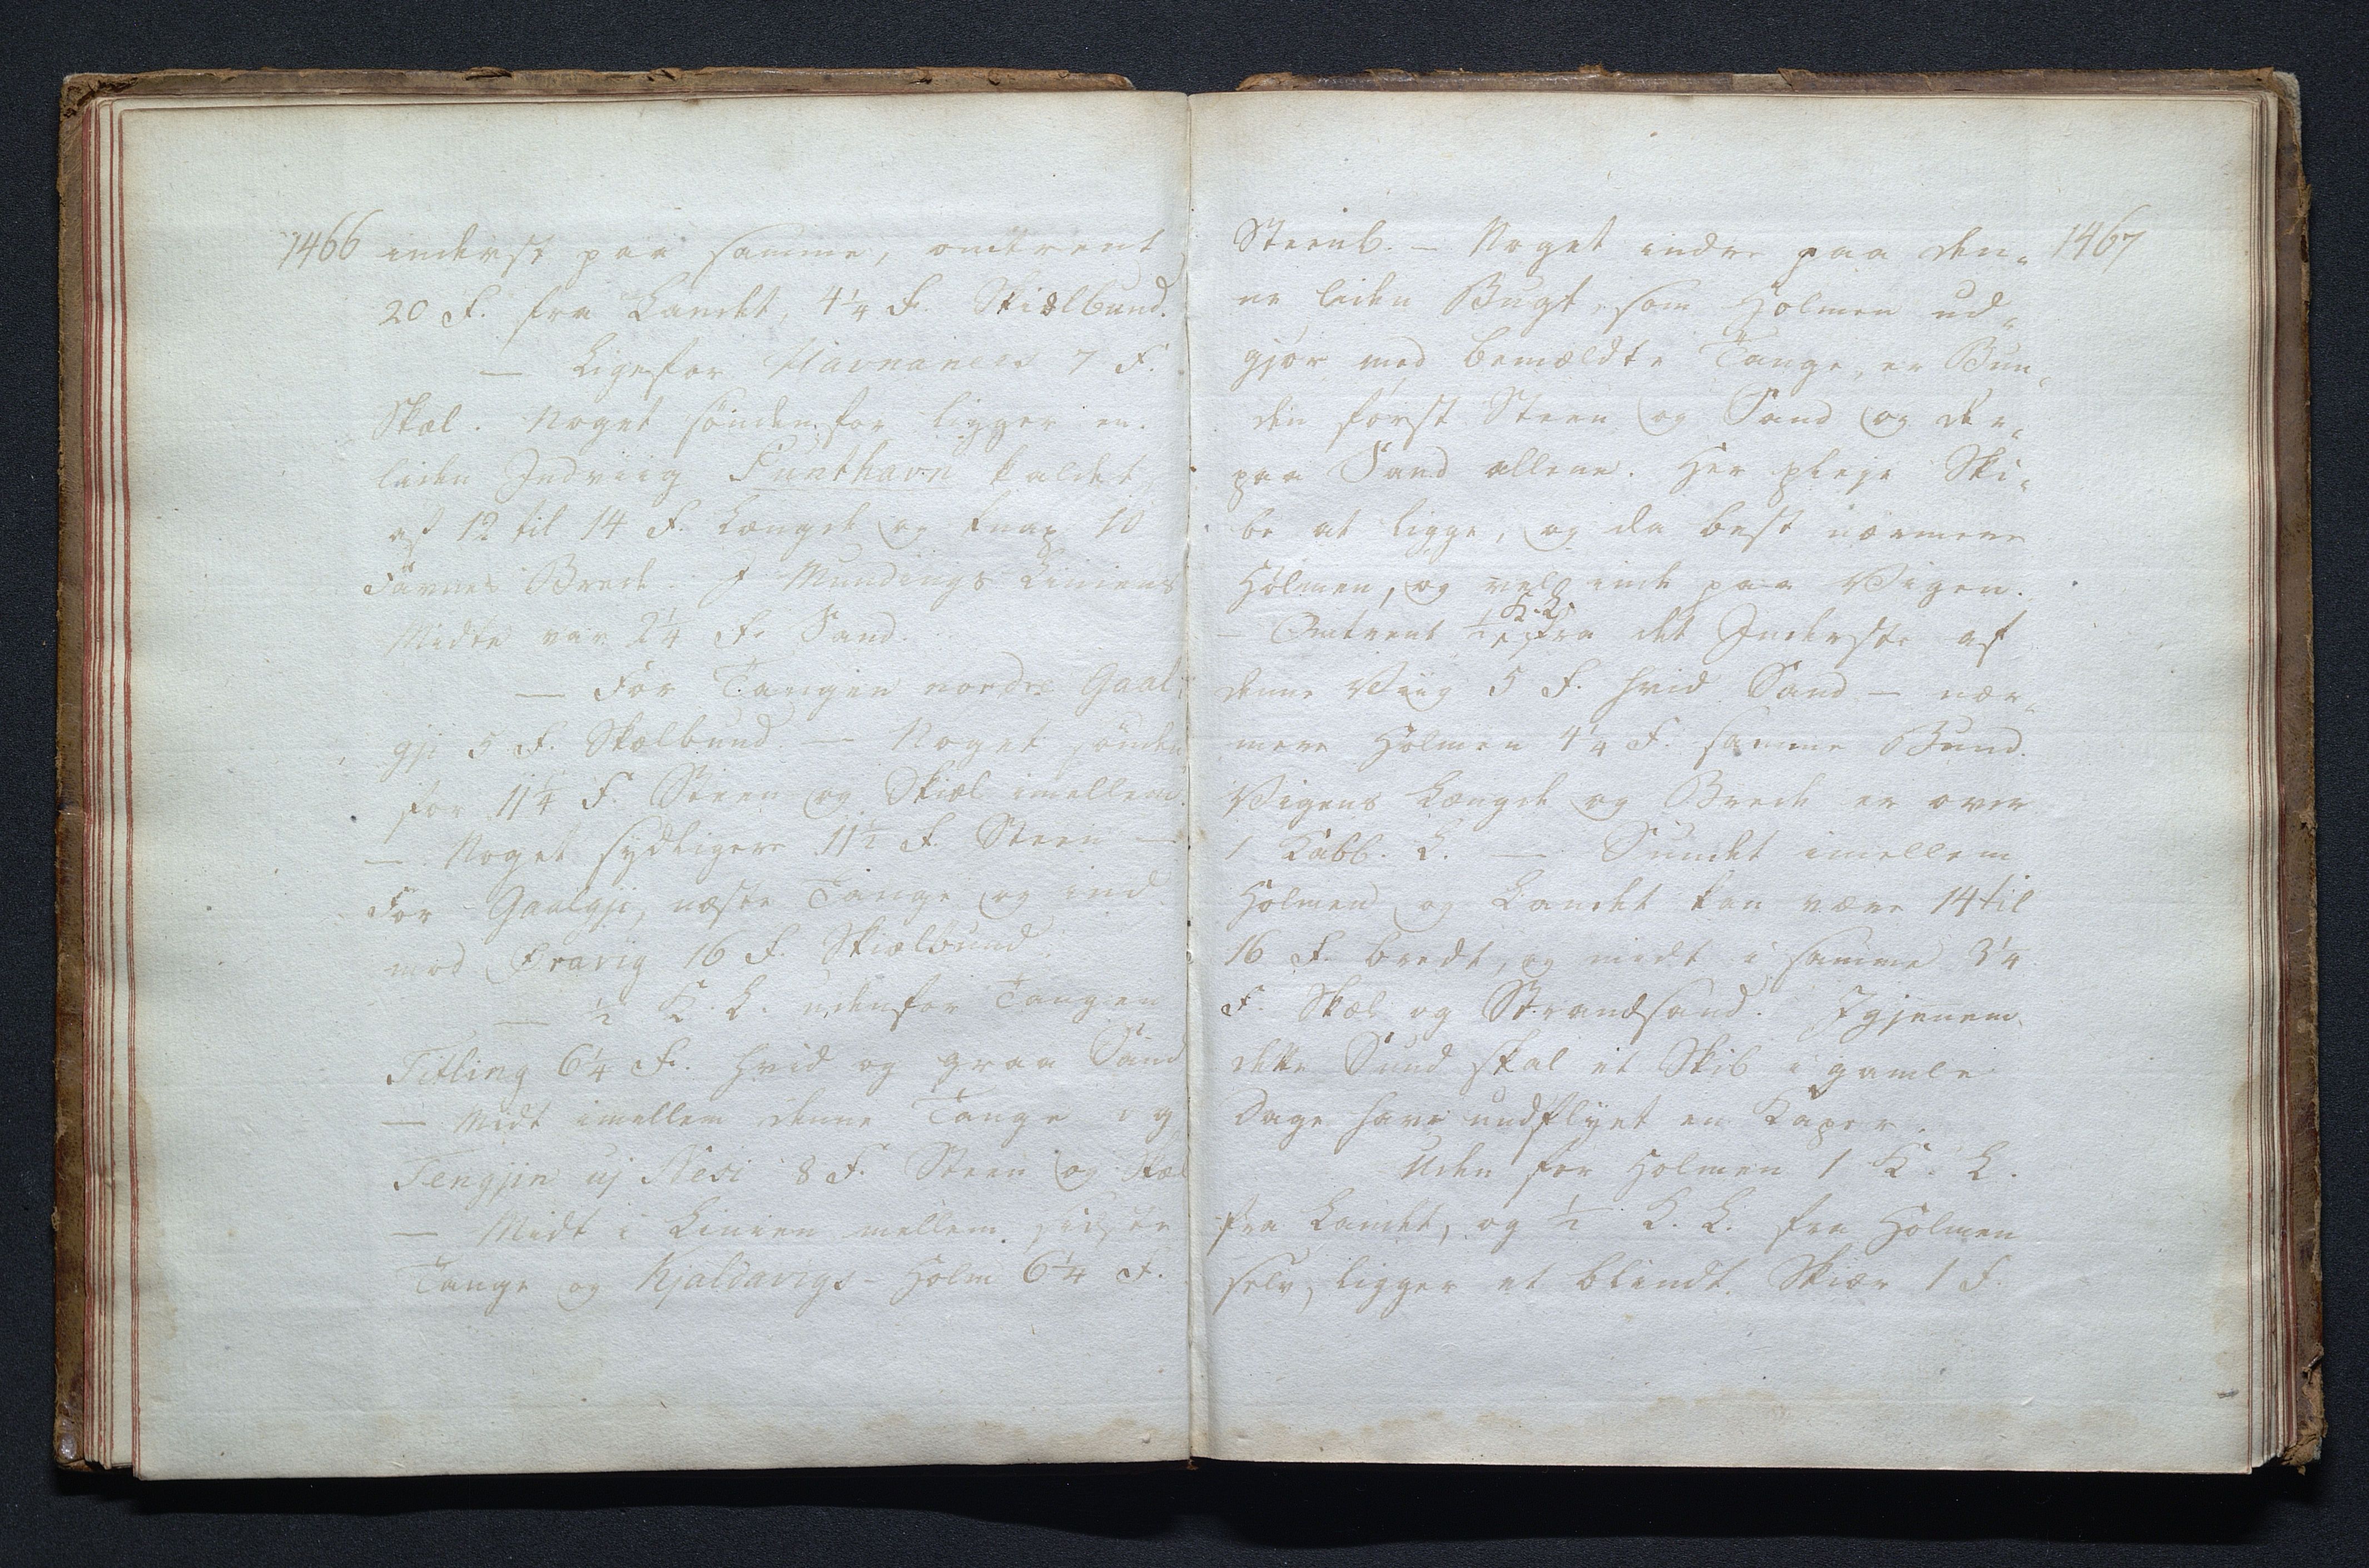 1466
inderst paa samme, omtrent
20 F. fra Landet, 4¼ F. Skiælbund.
— Ligefor Havnanes 7 F.
Skæl. Noget sønden for ligger en
liden Indviig Funthavn kaldet
af 12 til 14 F. Længde og knap 10
Favnes Brede. I Mundings Liniens
Midte var 2¼ F. Sand.
— For Tangen nordre Gaal-
gji 5 F. Skælbund. — Noget sønden
for 11¼ F. Steen og Skiæl imellem.
— Noget sydligere 11½ F. Steen —
For Gaalgji, næste Tange og ind
mod Øravig 16 F. Skiælbund
— ½ K. L. udenfor Tangen
Titling 6¼ F. hvid og graa Sand
— Midt imellem denne Tange og
Tengjin uj Nesi 8 F. Steen og Skæl
— Midt i Linien mellem sidste
Tange og Kjaldavigs-Holm 6¼ F.
1467
Steenb. — Noget indre paa den-
ne liden Bugt, som Holmen ud-
gjør med bemældte Tange, er Bun-
den først Steen og Sand og der-
paa Sand allene. Her pleje Ski-
be at ligge, og da best nærmere
Holmen, og vel inde paa Vigen.
— Omtrent ½ K. L. fra det Inderste af
denne Viig 5 F. hvid Sand — nær-
mere Holmen 4¼ F. samme Bund.
Vigens Længde og Brede er over
1 Kabb. L. — Sundet imellem
Holmen og Landet kan være 14 til
16 F. bredt, og midt i samme 3¼
F. Skæl og Strandsand. Igjenem
dette Sund skal et Skib i gamle
Dage have undflyet en Kaper.
Uden for Holmen 1 K. L.
fra Landet, og ½ K. L. fra Holmen
selv, ligger et blindt Skiær 1 F.